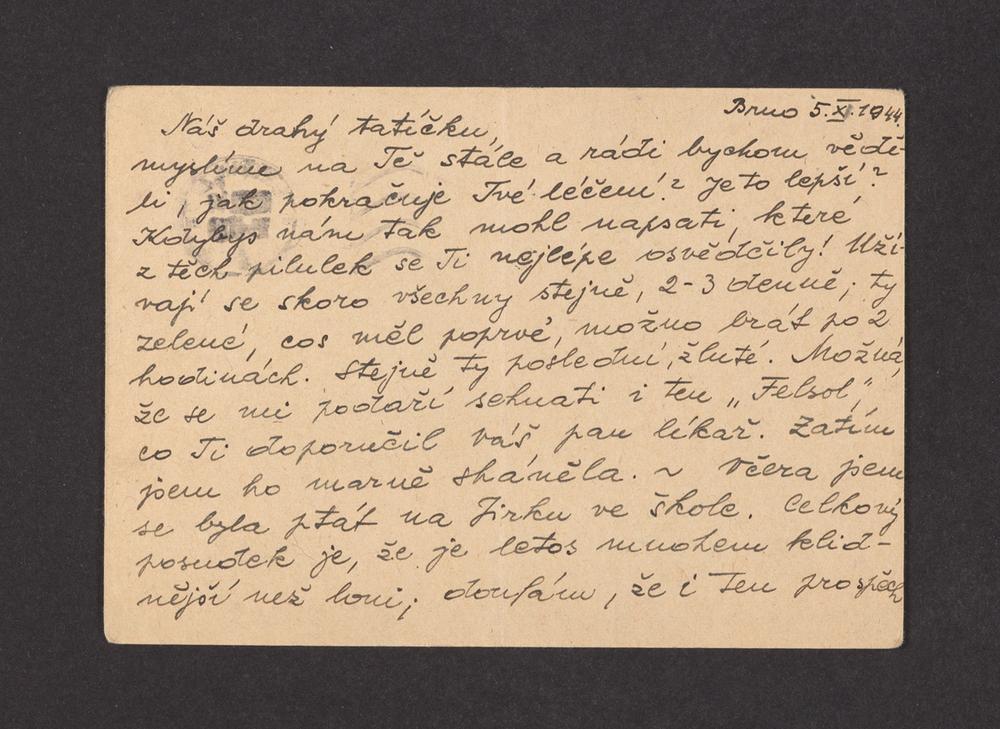 Brno 5.XI.1944.
Náš drahý tatíčku,
myslíme na Tě stále a rádi bychom vědě-
li, jak pokračuje Tvé léčení? Je to lepší?
Kdybys nám tak mohl napsati, které
z těch pilulek se Ti nejlépe osvědčily! Uží-
vají se skoro všechny stejně, 2-3 denně; ty
zelené, cos měl poprvé, možno brát po 2
hodinách. Stejně ty poslední, žluté. Možná,
že se mi podaří sehnati i ten „Felsol",
co Ti doporučil váš pan lékař. Zatím
jsem ho marně sháněla. ~ Včera jsem
se byla ptát na Jirku ve škole. Celkový
posudek je, že je letos mnohem klid-
nější než loni; doufám, že i ten prospěch